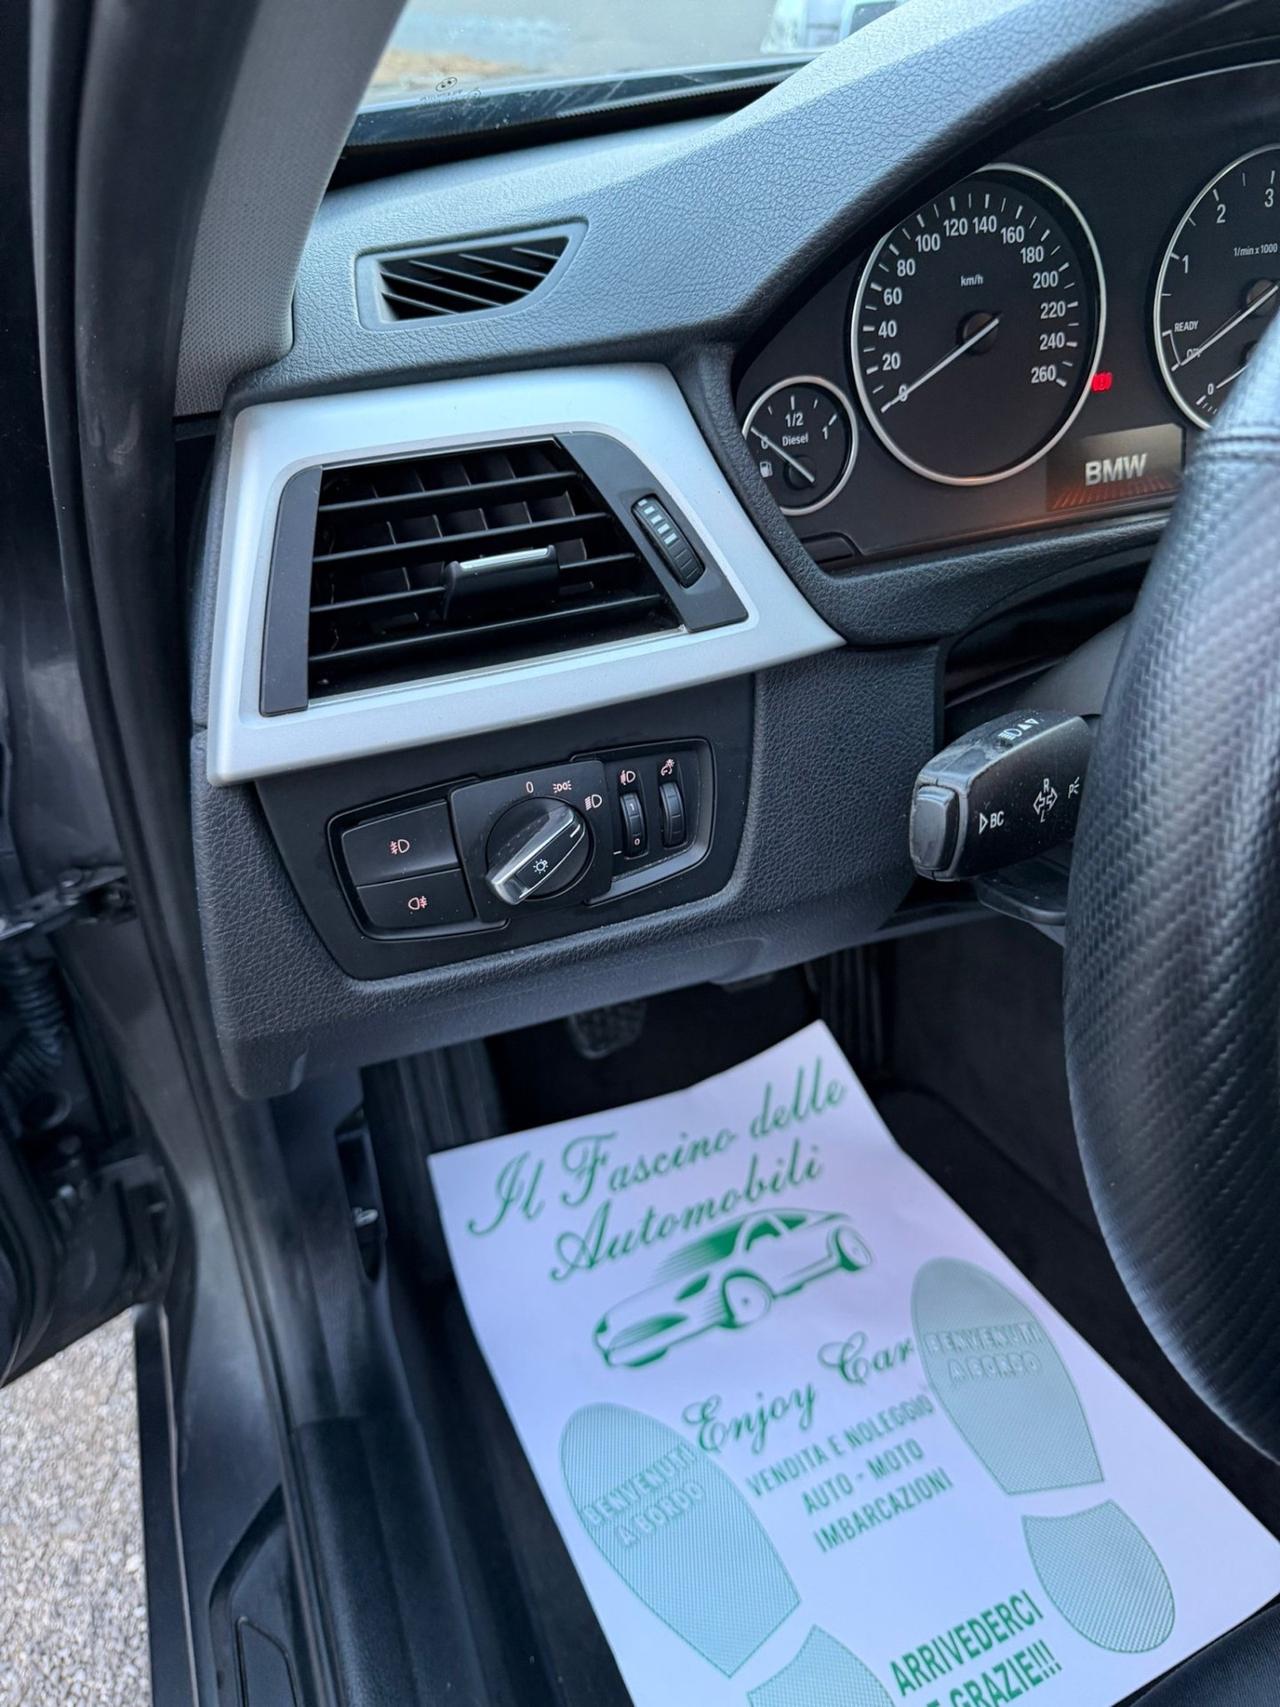 0
20
40
60
80
100
120
140
160
180
200
220
240
260
km/h
0
1/2
1
Diesel
1
2
3
1/min x 1000
READY
0
BMW
0
1
0
BC
R
L
Il Fascino delle
Automobili
Enjoy Car
VENDITA E NOLEGGIO
AUTO - MOTO
IMBARCAZIONI
BENVENUTI
A BORDO
BENVENUTI
A BORDO
ARRIVEDERCI
E GRAZIE!!!